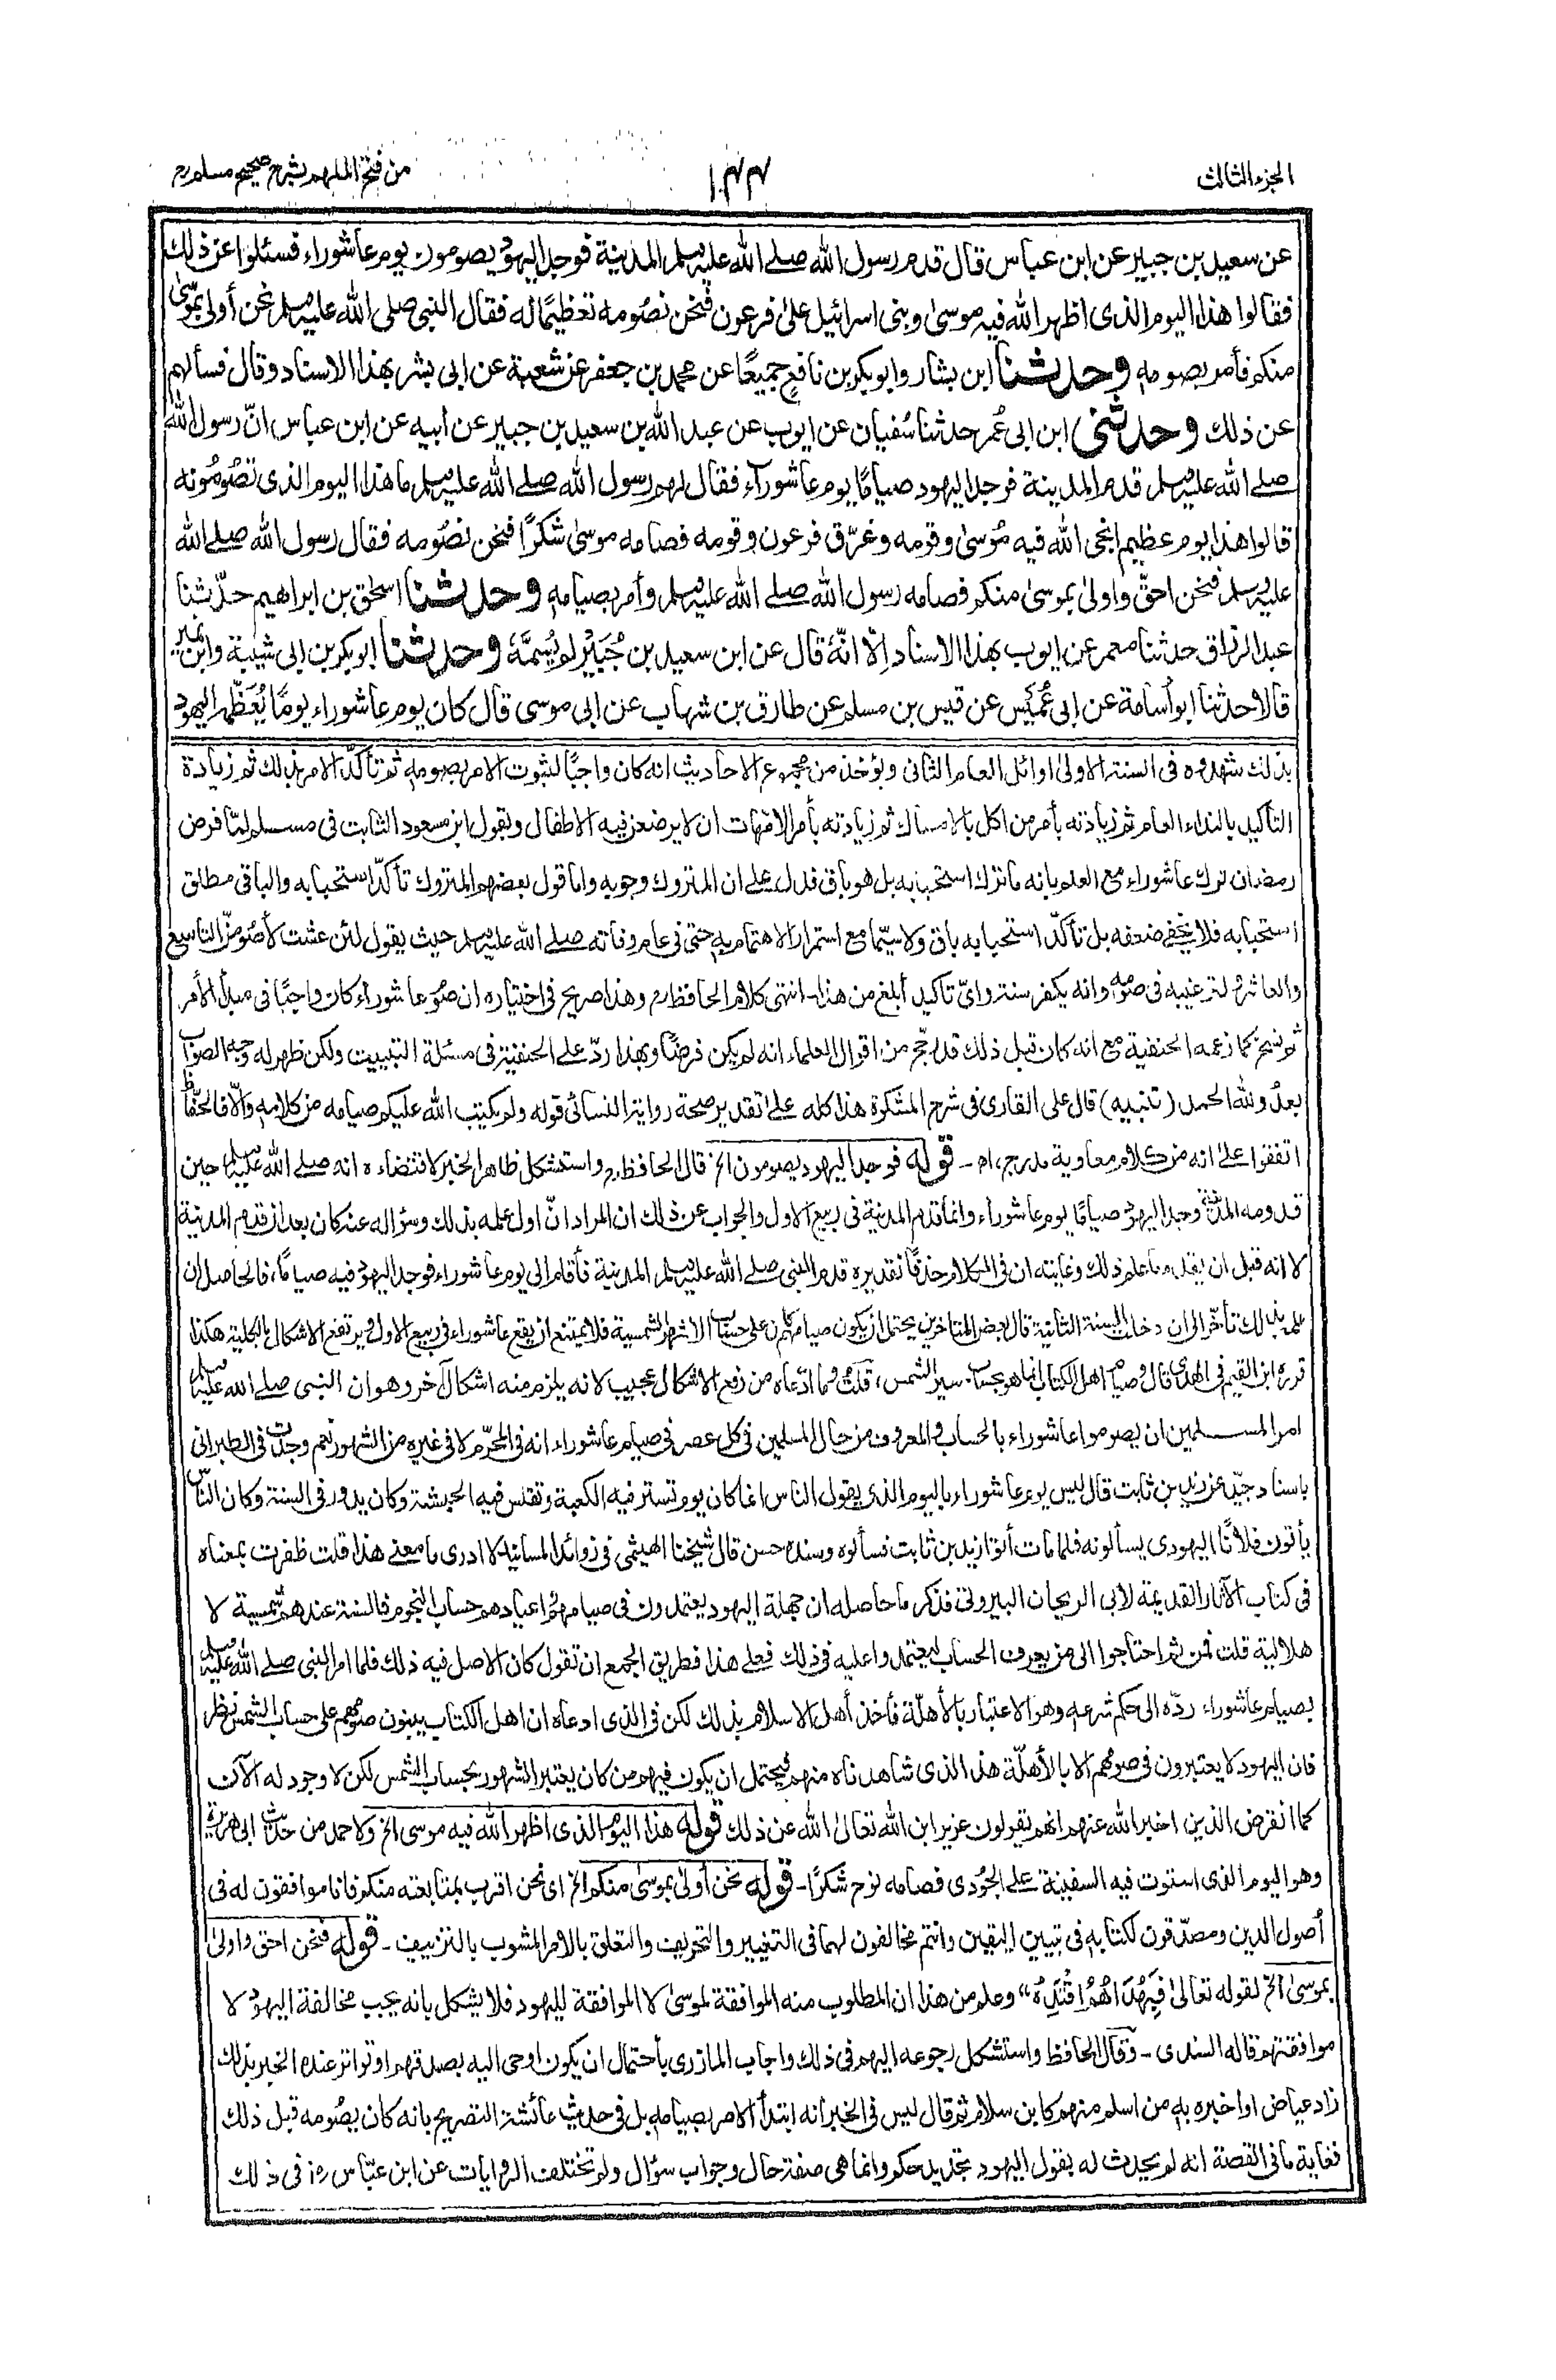 الجزء الثالث
١٤٤
من فتح الملهم بشرح صحيح مسلم رح
عن سعيد بن جبير عن ابن عباس قال قدم رسول الله صلے الله عليه وسلم المدينة فوجد اليهود يصومون يوم عاشوراء فسئلوا عن ذلك
فقالوا هذا اليوم الذى اظهر الله فيه موسىٰ وبنى اسرائيل علىٰ فرعون فنحن نصُومه تعظيمًا له فقال النبى صلى الله عليه وسلم نحن أولى بموسىٰ
منكم فأمر بصومه وحدثنا ابن بشار وابو بكر بن نافع جميعًا عن محمد بن جعفر عن شعبة عن ابى بشر بهذا الاسناد وقال فسألهم
عن ذلك وحدثنى ابن ابى عُمر حدثنا سُفيان عن ايوب عن عبد الله بن سعيد بن جبير عن أبيه عن ابن عباس انّ رسول الله
صلے الله عليه وسلم قدم المدينة فوجد اليهود صيامًا يوم عاشوراء فقال لهم رسول الله صلے الله عليه وسلم ما هذا اليوم الذى تصُومُونه
قالوا هذا يوم عظيم انجى الله فيه مُوسىٰ وقومه وغرّق فرعون وقومه فصامه موسىٰ شكرًا فنحن نصُومه فقال رسول الله صلے الله
عليه وسلم فنحن احقّ واولىٰ بموسىٰ منكم فصامه رسول الله صلے الله عليه وسلم وأمر بصيامه وحدثنا اسحٰق بن ابراهيم حدّثنا
عبد الرزاق حدثنا معمر عن ايوب بهذا الاسناد اِلّا انّهٗ قال عن ابن سعيد بن جُبَيْر لم يُسمّهٗ وحدثنا ابو بكر بن ابى شيبة وابن نمير
قالا حدثنا ابو أسامة عن ابى عُمَيس عن قيس بن مسلم عن طارق بن شهاب عن ابى موسى قال كان يوم عاشوراء يومًا يُعَظّمه اليهود
بذلك شهدوه فى السنة الاولىٰ اوائل العام الثانى ويؤخذ من مجموع الاحاديث انه كان واجبًا لثبوت الامر بصومه ثم تأكّد الامر بذلك ثم زيادة
التأكيد بالنداء العام ثم زيادته بأمر من اكل بالامساك ثم زيادته بأمر الامّهات ان لا يرضعن فيه الاطفال وبقول ابن مسعود الثابت فى مسلم لمّا فرض
رمضان ترك عاشوراء مع العلم بانه ما ترك استحبابه بل هو باق فدل على ان المتروك وجوبه واما قول بعضهم المتروك تأكّد استحبابه والباقى مطلق
استحبابه فلا يخفى ضعفه بل تأكّد استحبابه باق ولا سيّما مع استمرار الاهتمام به حتى فى عام وفاته صلے الله عليه وسلم حيث يقول لئن عشت لأصُومنّ التاسع
والعاشر، لترغيبه فى صومه وانه يكفر سنة واىّ تاكيد أبلغ من هذا۔ انتهى كلام الحافظ رح وهذا صريح فى اختياره ان صوم عاشوراء كان واجبًا فى مبدأ الأمر
ثم نسخ كما زعمه الحنفية مع انه كان قبل ذلك قد رجّح من اقوال العلماء انه لم يكن فرضًا وبهذا ردّ على الحنفية فى مسئلة التبييت ولكن ظهر له وجه الصواب
بعدُ ولله الحمد (تنبيه) قال على القارى فى شرح المشكوٰة هذا كله علے تقدير صحة رواية النسائى قوله ولم يكتب الله عليكم صيامه من كلامه والّا فالحفّاظ
اتفقوا علىٰ انه من كلام معاوية مدرج، اھ ۔ قوله فوجد اليهود يصومون الخ قال الحافظ رح واستشكل ظاهر الخبر لاقتضاءه انه صلے الله عليه وسلم حين
قدومه المدينة وجد اليهود صيامًا يوم عاشوراء وانما قدم المدينة فى ربيع الاول والجواب عن ذلك ان المراد انّ اول علمه بذلك وسؤاله عنه كان بعد ان قدم المدينة
لا انه قبل ان يقدمها علم ذلك وغايته ان فى الكلام حذفًا تقديره قدم النبى صلے الله عليه وسلم المدينة فأقام الى يوم عاشوراء فوجد اليهود فيه صيامًا، فالحاصل ان
علمه بذلك تأخّر الى ان دخلت السنة الثانية قال بعض المتاخرين يحتمل ان يكون صيامهم كان على حساب الاشهر الشمسية فلا يمتنع ان يقع عاشوراء فى ربيع الاول ويرتفع الاشكال بالكلية هكذا
قرره ابن القيم فى الهدى قال وصيام اهل الكتاب انما هو بحساب سير الشمس، قلتُ وما ادّعاه من رفع الاشكال عجيب لانه يلزم منه اشكال آخر وهو ان النبى صلے الله عليه وسلم
امر المسلمين ان يصوموا عاشوراء بالحساب والمعروف من حال المسلمين فى كل عصر فى صيام عاشوراء انه فى المحرّم لا فى غيره من الشهور نعم وجدت فى الطبرانى
باسناد جيّد عن زيد بن ثابت قال ليس يوم عاشوراء باليوم الذى يقول الناس انما كان يوم تستر فيه الكعبة وتقلس فيه الحبشة وكان يدور فى السنة وكان الناس
يأتون فلانًا اليهودى يسألونه فلما مات أتوا زيد بن ثابت فسألوه وسنده حسن قال شيخنا الهيثمى فى زوائد المسانيد لا ادرى ما معنے هذا قلت ظفرت بمعناه
فى كتاب الآثار القديمة لأبى الريحان البيرونى فذكر ما حاصله ان جهلة اليهود يعتمدون فى صيامهم واعيادهم حساب النجوم فالسنة عندهم شمسية لا
هلالية قلت فمن ثم احتاجوا الى من يعرف الحساب ليعتمدوا عليه فى ذلك فعلے هذا فطريق الجمع ان تقول كان الاصل فيه ذلك فلما امر النبى صلے الله عليه وسلم
بصيام عاشوراء ردّه الى حكم شرعه وهو الاعتبار بالأهلّة فأخذ أهل الاسلام بذلك لكن فى الذى ادعاه ان اهل الكتاب يبنون صومهم على حساب الشمس نظر
فان اليهود لا يعتبرون فى صومهم الا بالأهلّة هذا الذى شاهدناه منهم فيحتمل ان يكون فيهم من كان يعتبر الشهور بحساب الشمس لكن لا وجود له الآن
كما انقرض الذين اخبر الله عنهم انهم يقولون عزير ابن الله تعالىٰ الله عن ذلك قوله هذا اليوم الذى اظهر الله فيه موسى الخ ولاحمد من حديث ابى هريرة
وهو اليوم الذى استوت فيه السفينة علے الجُودى فصامه نوح شكرًا۔ قوله نحن أولىٰ بموسىٰ منكم الخ اى نحن اقرب بمتابعته منكم فانا موافقون له فى
أصول الدين ومصدّقون لكتابه فى تبيين اليقين وانتم مخالفون لهما فى التغيير والتحريف والتعلق بالامر المشوب بالتزييف ۔ قوله فنحن احق واولىٰ
بموسىٰ الخ لقوله تعالىٰ فَبِهُدَاهُمُ اقْتَدِهْ“ وعلم من هذا ان المطلوب منه الموافقة لموسىٰ لا الموافقة لليهود فلا يشكل بانه يجب مخالفة اليهود لا
موافقتهم قاله السندى ۔ وقال الحافظ واستشكل رجوعه اليهم فى ذلك واجاب المازرى باحتمال ان يكون اوحى اليه بصدقهم او تواتر عنده الخبر بذلك
زاد عياض او اخبره به من اسلم منهم كابن سلام ثم قال ليس فى الخبر انه ابتدأ الامر بصيامه بل فى حديث عائشة التصريح بانه كان يصُومه قبل ذلك
فغاية ما فى القصة انه لم يحدث له بقول اليهود تجديد حكم وانما هى صفة حال وجواب سؤال ولم تختلف الروايات عن ابن عبّاس رض فى ذلك